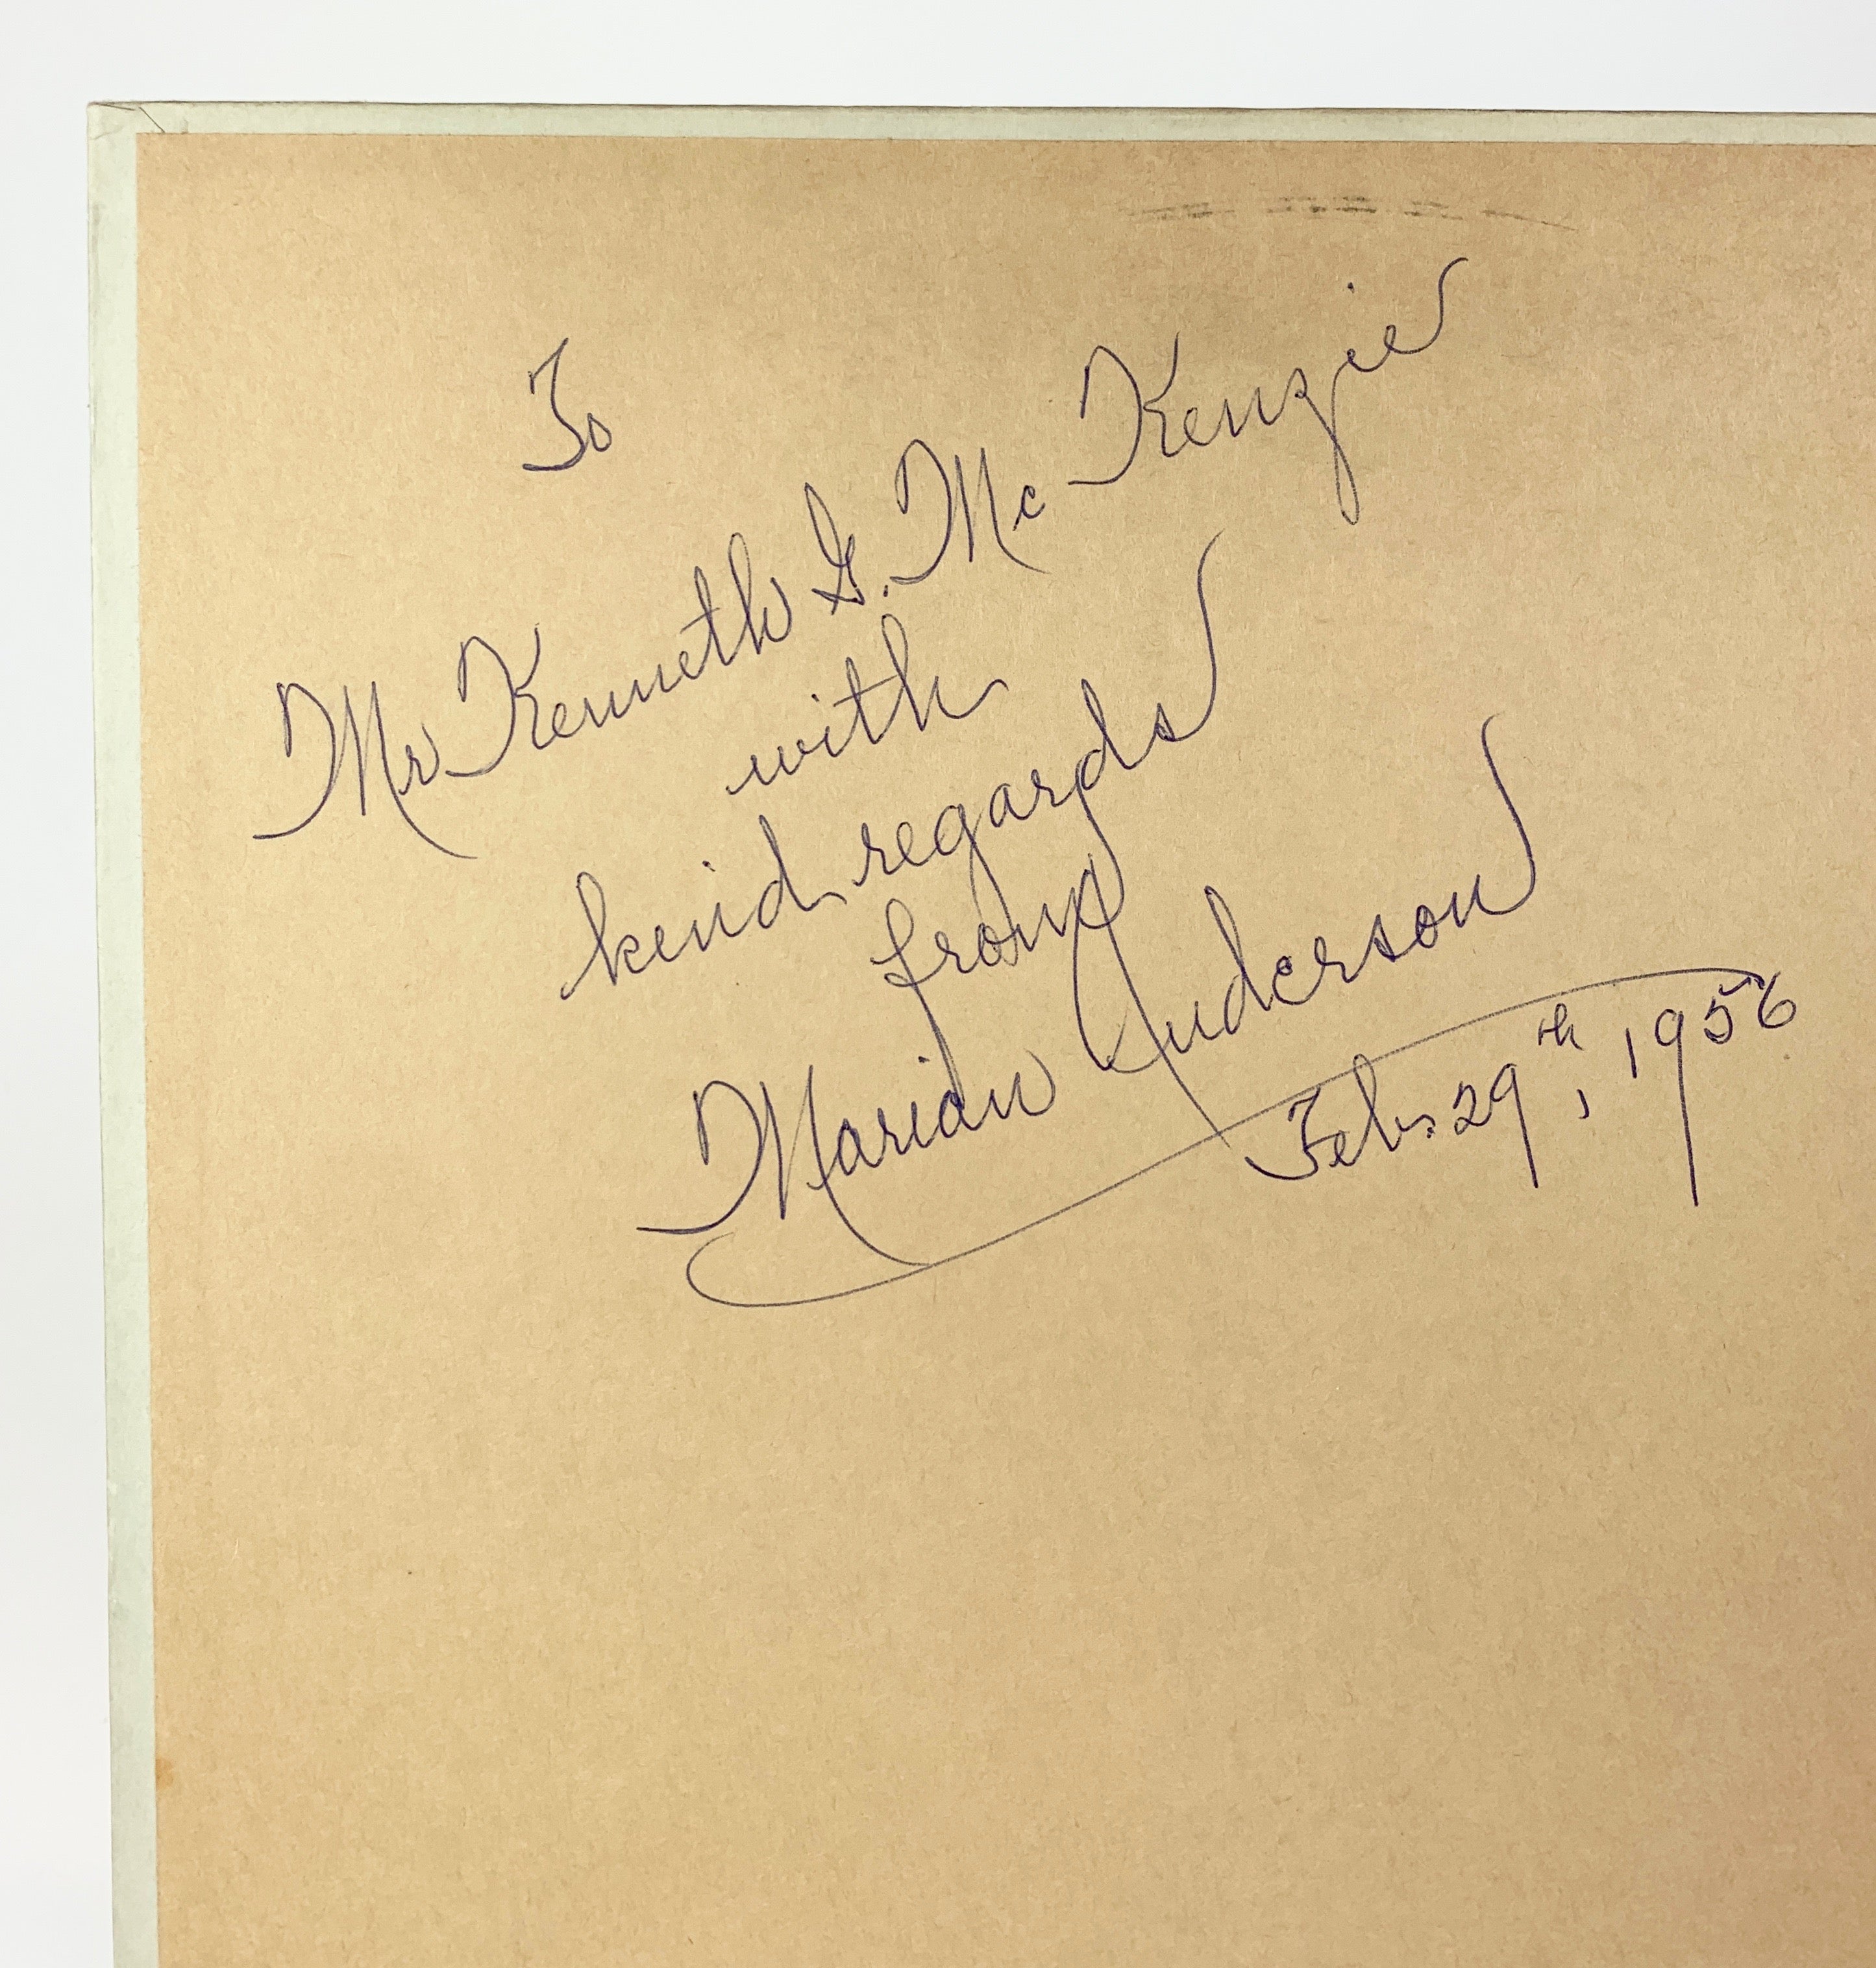 To
Mr Kenneth G. McKenzie
with
kind regards
from
Marian Anderson
Feb. 29th, 1956